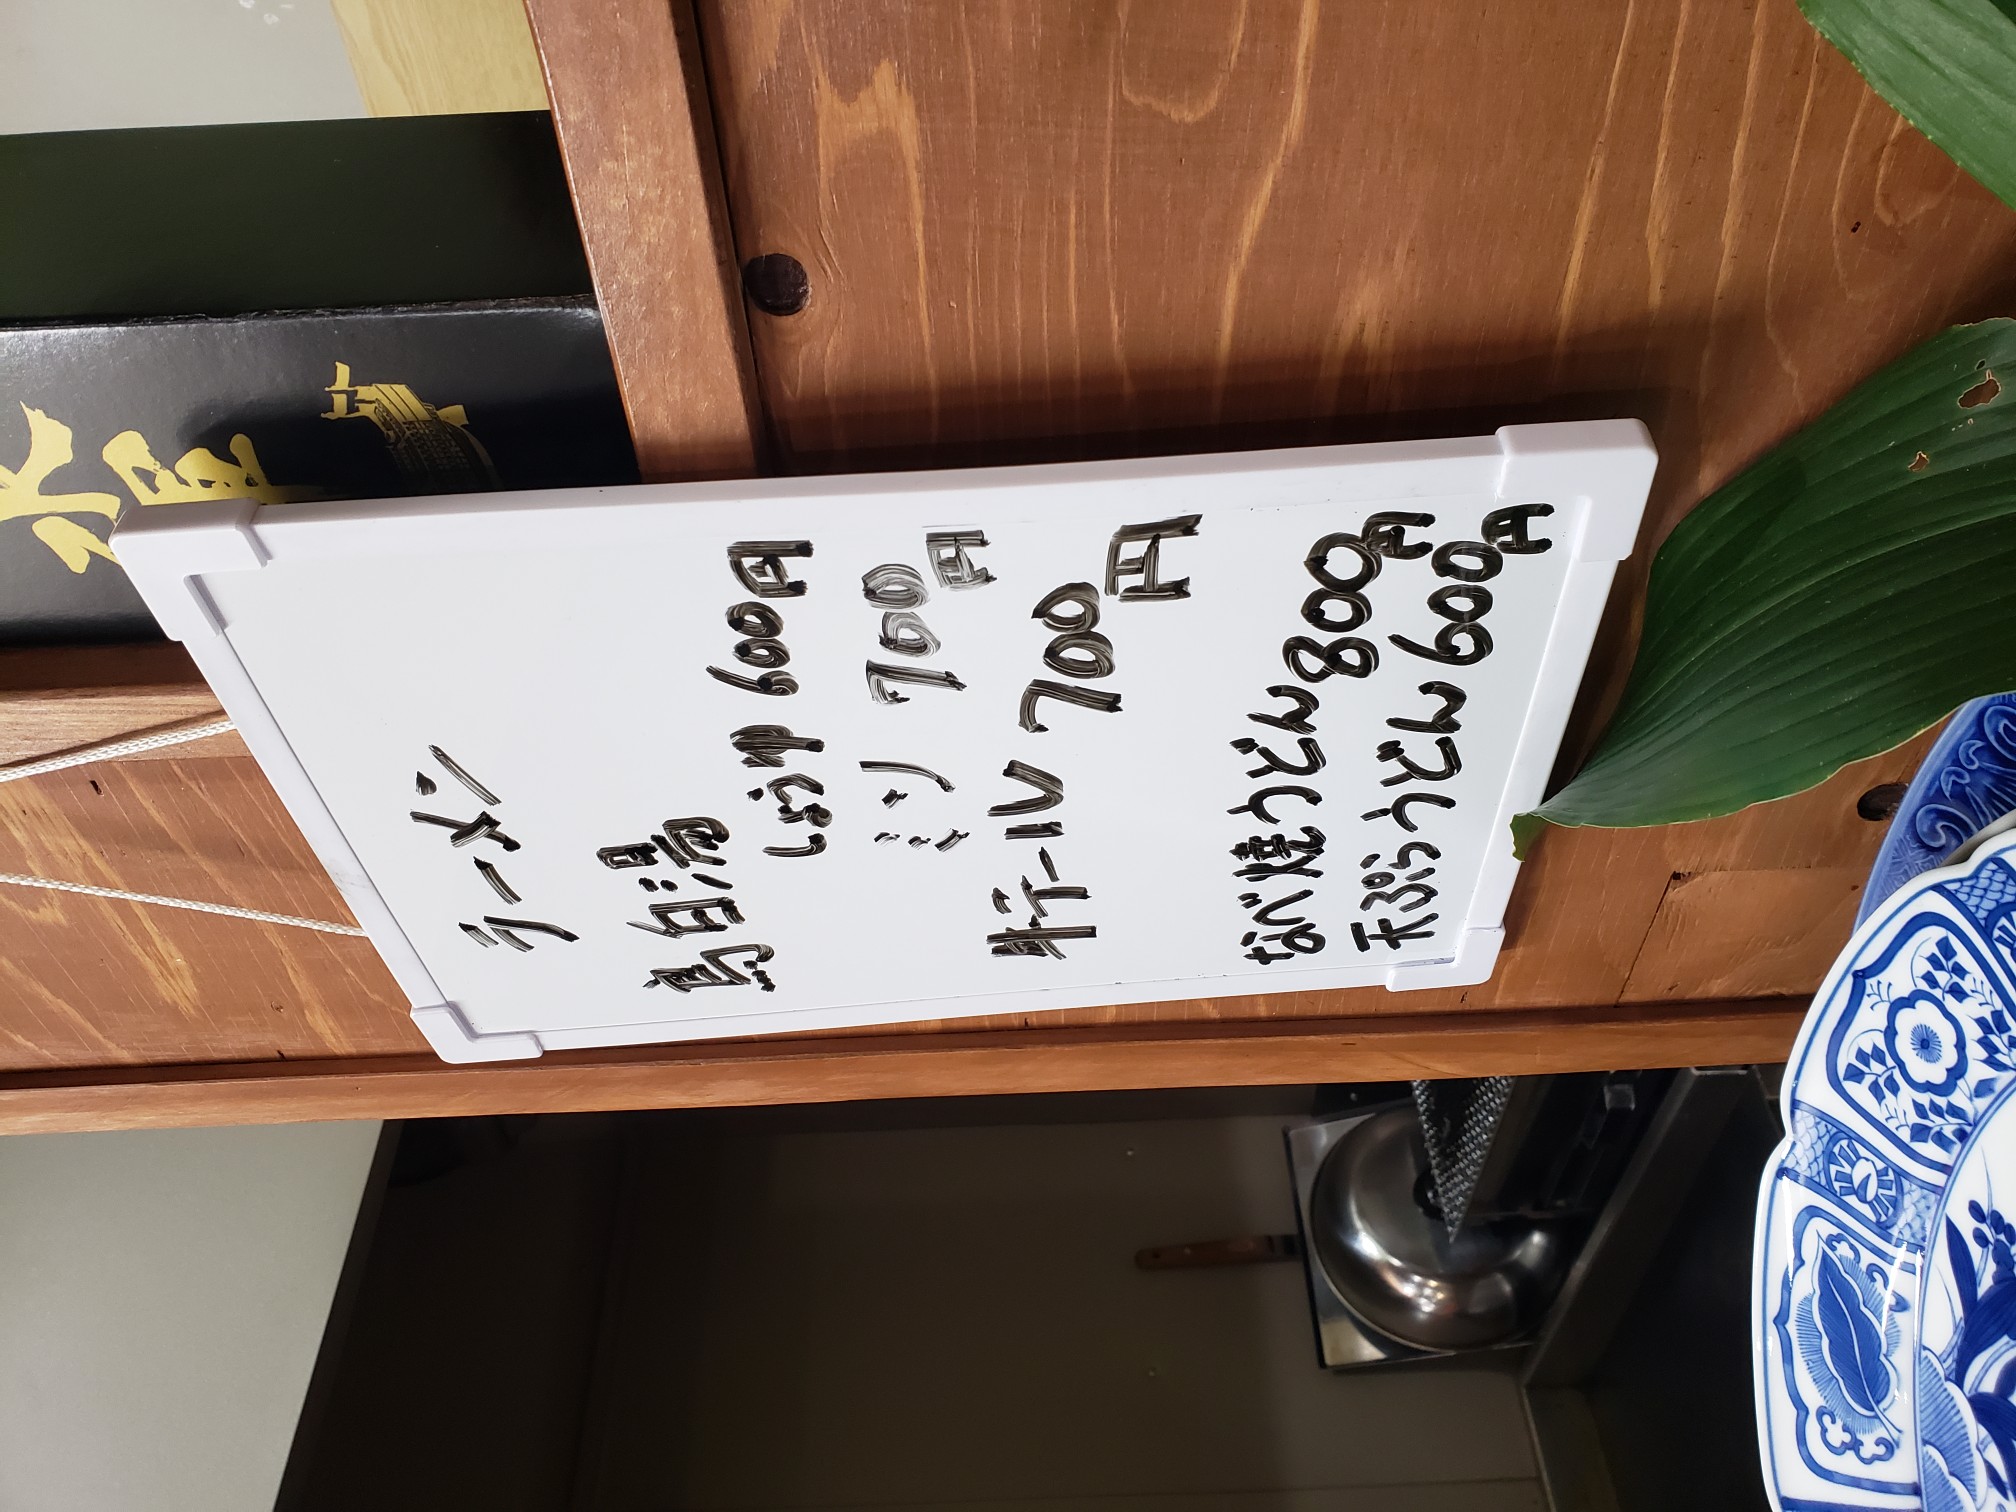 ラーメン
鳥白湯
しょうゆ 600円
ミソ 700円
牛テール 700円
なべ焼うどん 800円
天ぷらうどん 600円